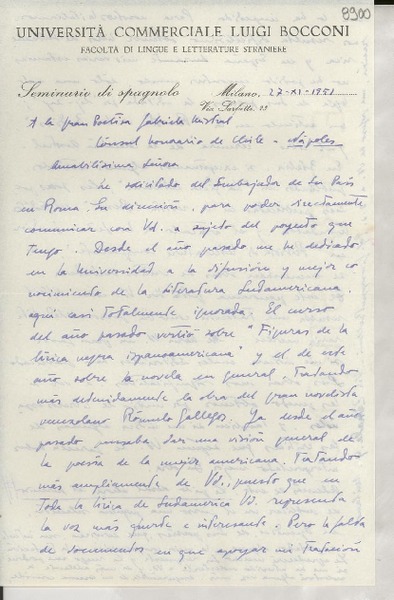 8900
UNIVERSITÀ COMMERCIALE LUIGI BOCCONI
FACOLTÀ DI LINGUE E LETTERATURE STRANIERE
Seminario di spagnolo Milano, 27-XI-1951
Via Sarfatti, 25
A la gran Poetisa Gabriela Mistral
Cónsul honorario de Chile - Nápoles
Amabilísima Señora
he solicitado del Embajador de Su País
en Roma Su dirección, para poder directamente
comunicar con Vd. a sujeto del proyecto que
tengo. Desde el año pasado me he dedicado
en la Universidad a la difusión y mejor co
nocimiento de la literatura Sudamericana,
aquí casi totalmente ignorada. El curso
del año pasado vertió sobre "Figuras de la
lírica negra ispanoamericana" y el de este
año sobre la novela en general, tratando
más detenidamente la obra del gran novelista
venezolano Rómulo Gallegos. Ya desde el año
pasado pensaba dar una visión general de
la poesía de la mujer americana, tratando
más ampliamente de Vd., puesto que en
toda la lírica de Sudamérica Vd. representa
la voz más fuerte e interesante. Pero la falta
de documentos en que apoyar mi tratación